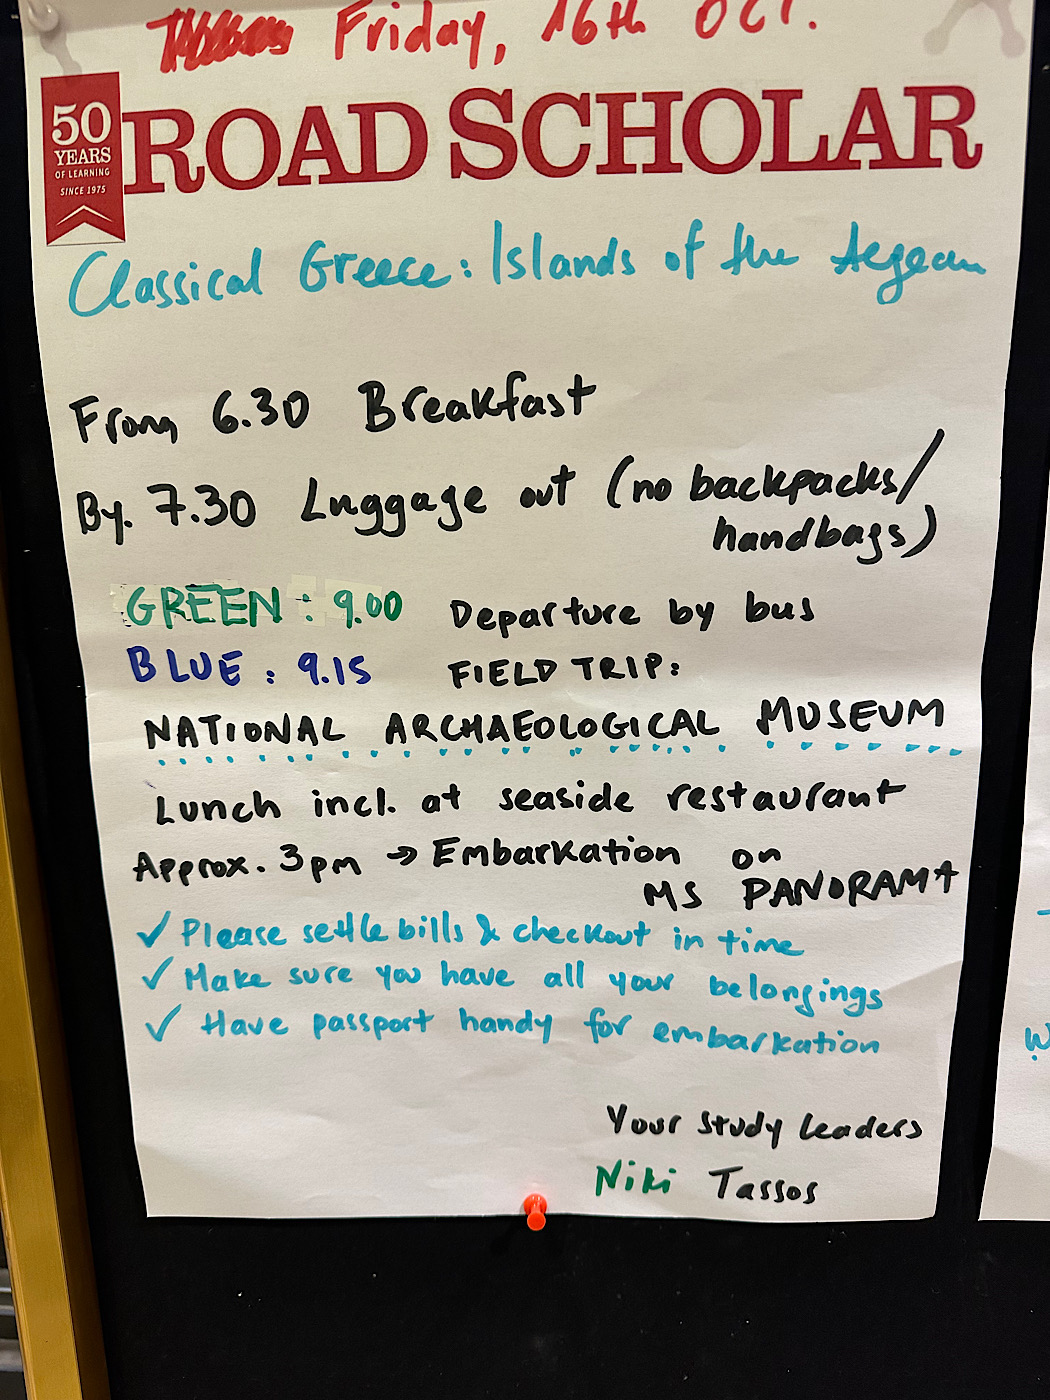 Friday, 16th OCT.
50
YEARS
OF LEARNING
SINCE 1975
ROAD SCHOLAR
Classical Greece: Islands of the Aegean
From 6.30 Breakfast
By. 7.30 Luggage out (no backpacks/
handbags)
GREEN: 9.00 Departure by bus
BLUE: 9.15 FIELD TRIP:
NATIONAL ARCHAEOLOGICAL MUSEUM
Lunch incl. at seaside restaurant
Approx. 3pm → Embarkation on
MS PANORAMA
✓ Please settle bills & checkout in time
✓ Make sure you have all your belongings
✓ Have passport handy for embarkation
Your Study Leaders
Niki Tassos